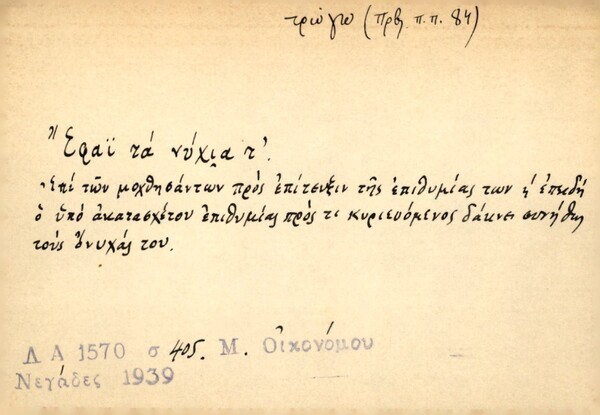 τρώγω (Πρβ. π.π. 84)
Ἔφαϊ τά νύχια τ'.
Ἐπί τῶν μοχθησάντων πρός ἐπίτευξιν τῆς ἐπιθυμίας των ἤ ἐπειδή
ὁ ὑπό ἀκατασχέτου ἐπιθυμίας πρός τι κυριευόμενος δάκνει συνήθως
τούς ὄνυχάς του.
Λ Α 1570 σ 405. Μ. Οἰκονόμου
Νεγάδες 1939